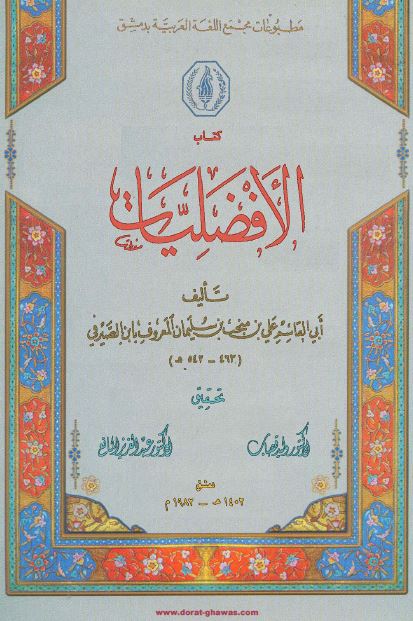 مطبوعات مجمع اللغة العربية بدمشق
كتاب
الأفضليات
تأليف
أبي القاسم علي بن منجب بن سليمان المعروف بابن الصيرفي
(٤٦٣ - ٥٤٢ هـ)
تحقيق
الدكتور وليد قصاب الدكتور عبد العزيز المانع
دمشق
١٤٠٢ هـ - ١٩٨٢ م
www.dorat-ghawas.com